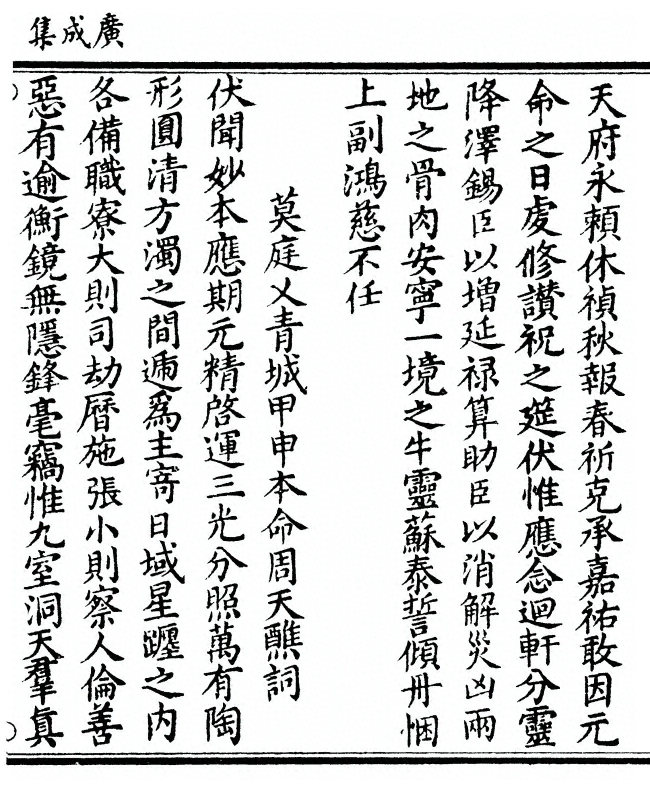 廣成集
天府永賴休禎秋報春祈克承嘉祐敢因元
命之日虔修讃祝之筵伏惟應念迴軒分靈
降澤錫臣以增延禄算助臣以消解災凶兩
地之骨肉安寧一境之生靈蘇泰誓傾丹悃
上副鴻慈不任
莫庭乂青城甲申本命周天醮詞
伏聞妙本應期元精啓運三光分照萬有陶
形圓清方濁之間遞爲主寄日域星躔之内
各備職寮大則司劫曆施張小則察人倫善
惡有逾衡鏡無隱鋒毫竊惟九室洞天羣真